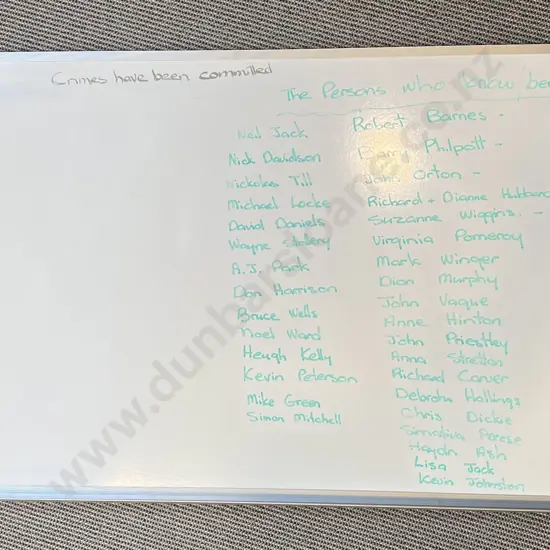 Crimes have been committed
The Persons who know be
Neil Jack
Nick Davidson
Nickolas Till
Michael Locke
David Daniels
Wayne
A.J. Park
Don Harrison
Bruce Wells
Noel Ward
Heugh Kelly
Kevin Peterson
Mike Green
Simon Mitchell
Robert Barnes -
Barry Philpott -
John Orton -
Richard + Dianne Hubbard
Suzanne Wiggins. -
Virginia Pomeroy
Mark Winger
Dion Murphy
John Vague
Anne Hinton
John Priestley
Anna Stretton
Richard Carver
Deborah Hollings
Chris Dickie
Haydn Ash
Lisa Jack
Kevin Johnston